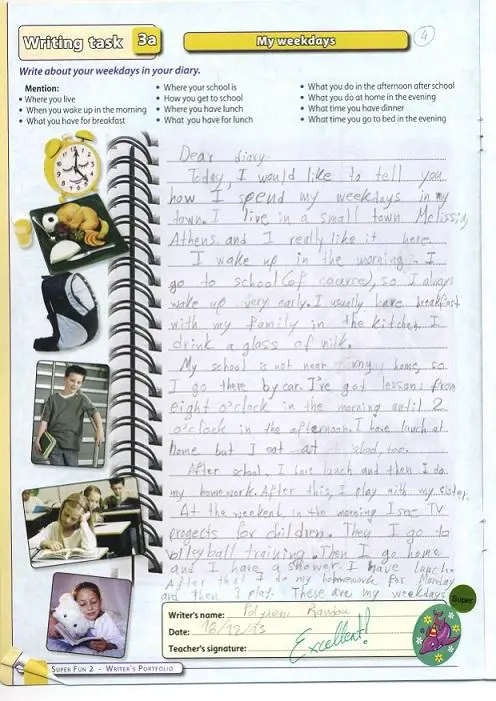 Writing task 3a
My weekdays
4
Write about your weekdays in your diary.
Mention:
• Where you live
• When you wake up in the morning
• What you have for breakfast
• Where your school is
• How you get to school
• Where you have lunch
• What you have for lunch
• What you do in the afternoon after school
• What you do at home in the evening
• What time you have dinner
• What time you go to bed in the evening
Dear diary.
Today, I would like to tell you
how I spend my weekdays in my
town. I live in a small town Melissia,
Athens. and I really like it here.
I wake up in the morning. I
go to school (of course), so I always
wake up very early. I usually have breakfast
with my family in the kitchen. I
drink a glass of milk.
My school is not near my home, so
I go there by car. I've got lessons from
eight o'clock in the morning until 2
o'clock in the afternoon. I have lunch at
home but I eat at school, too.
After school, I have lunch and then I do
my homework. After this, I play with my sister.
At the weekend, in the morning I see TV
progects for children. Then I go to
volleyball training. Then I go home
and I have a shower. I have lunch.
After that I do my homework for Monday
and then I play. These are my weekdays
Super
Writer's name:
Date: 16/12/13
Teacher's signature: Excellent!
SUPER FUN 2 - WRITER'S PORTFOLIO